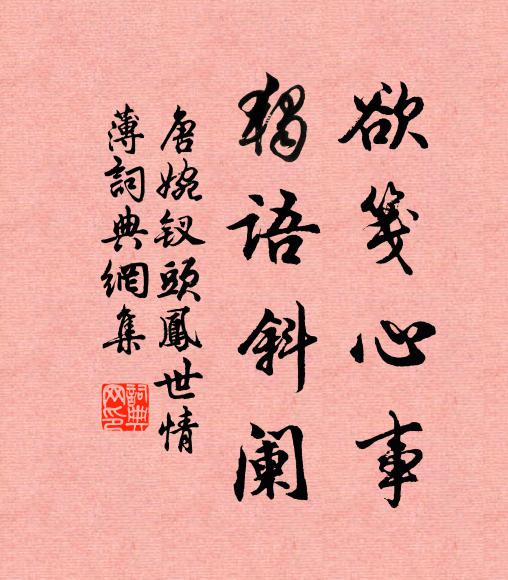 欲笺心事
獨語斜阑
唐婉钗頭鳳世情
薄詞典網集
詞典
网印